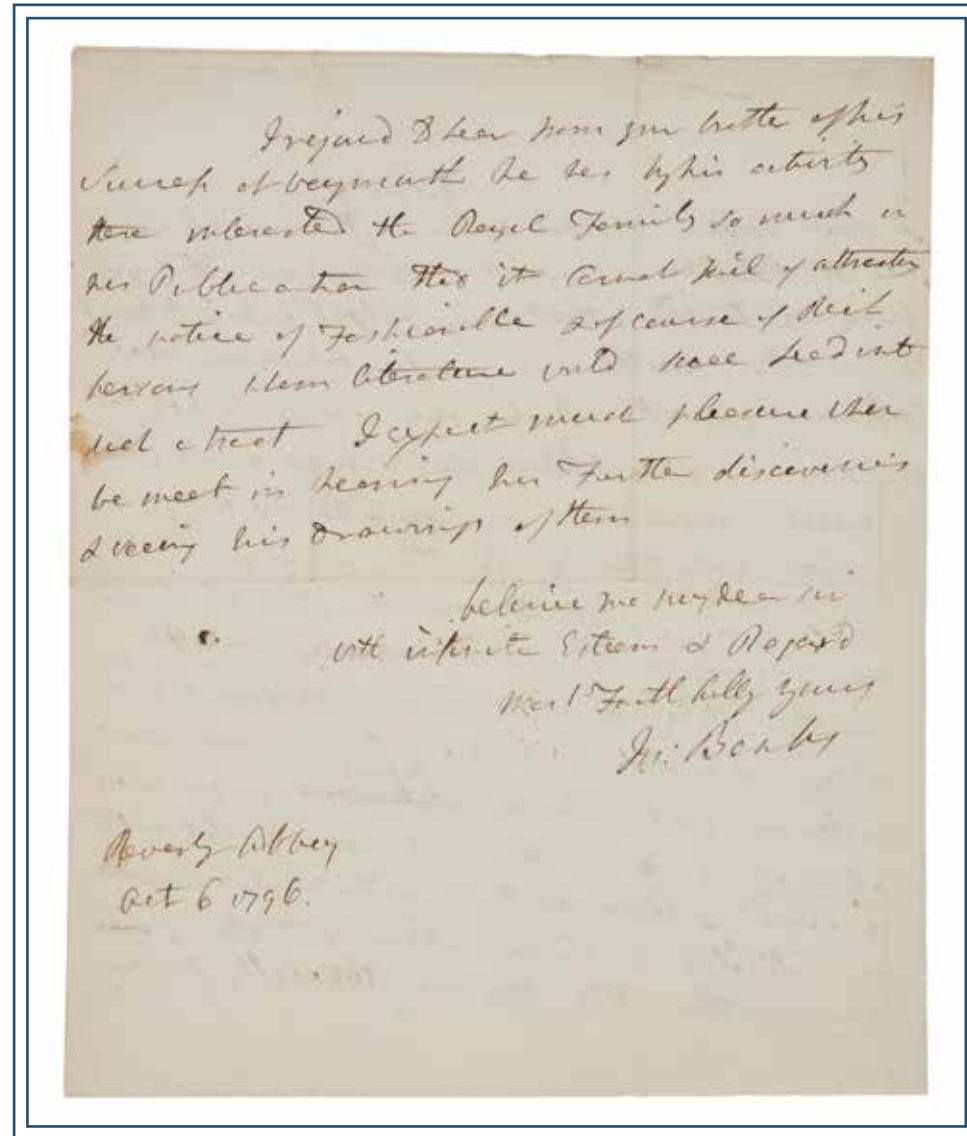 I rejoicd to hear from your brother of his
Success at Weymouth he has by his activity
there interested the Royal Family so much in
his Publication that it cannot fail of attracting
the notice of Fashionable & of course of Rich
persons whom literature would have had in
I expect much pleasure when
we meet in hearing his Further discoveries
& seeing his Drawings of them
believe me my dear Sir
with infinite Esteem & Regard
most Faithfully yours
Jos: Banks
Revesby Abbey
Oct 6 1796.